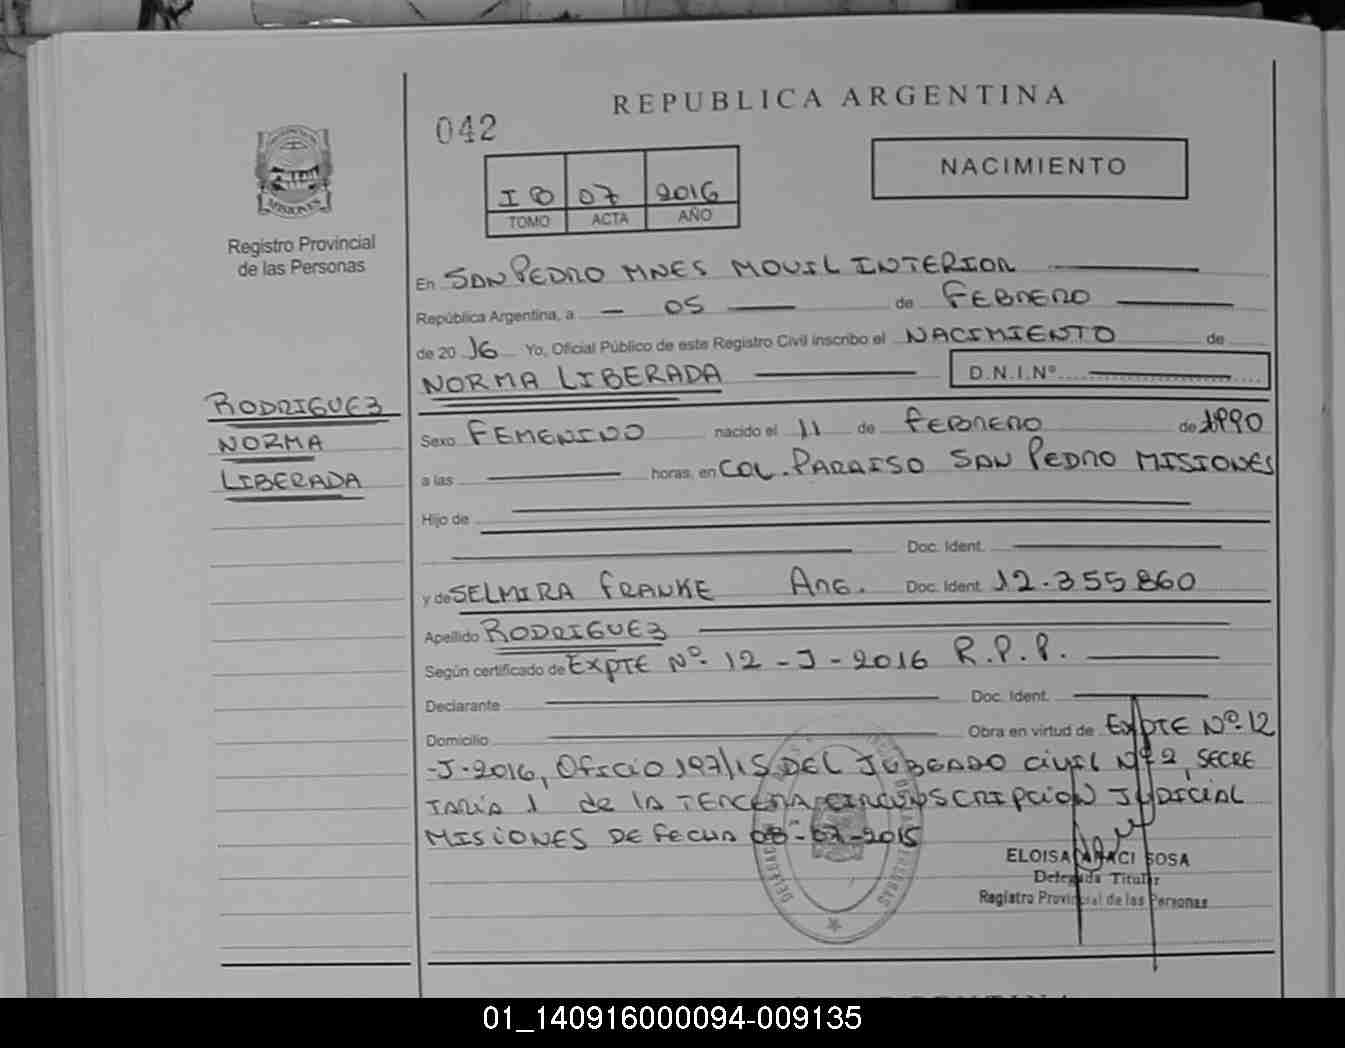 REPUBLICA ARGENTINA
042
NACIMIENTO
I B 07 2016
TOMO ACTA AÑO
MISIONES
Registro Provincial
de las Personas
En SAN PEDRO MNES MOVIL INTERIOR
República Argentina, a 05 de FEBRERO
de 2016 Yo, Oficial Público de este Registro Civil inscribo el NACIMIENTO de
NORMA LIBERADA D.N.I.Nº
RODRIGUEZ
NORMA
LIBERADA
Sexo FEMENINO nacido el 11 de FEBRERO de 1990
a las horas, en COL. PARAISO SAN PEDRO MISIONES
Hijo de
Doc. Ident.
y de SELMIRA FRANKE ARG. Doc. Ident. 12.355.860
Apellido RODRIGUEZ
Según certificado de EXPTE Nº 12 - J - 2016 R.P.P.
Declarante Doc. Ident.
Domicilio Obra en virtud de EXPTE Nº 12
-J-2016, OFICIO 197/15 DEL JUZGADO CIVIL Nº 2, SECRE
TARIA 1 de LA TERCERA CIRCUNSCRIPCION JUDICIAL
MISIONES DE FECHA 08-07-2015
ELOISA ARACI SOSA
Delegada Titular
Registro Provincial de las Personas
01_140916000094-009135